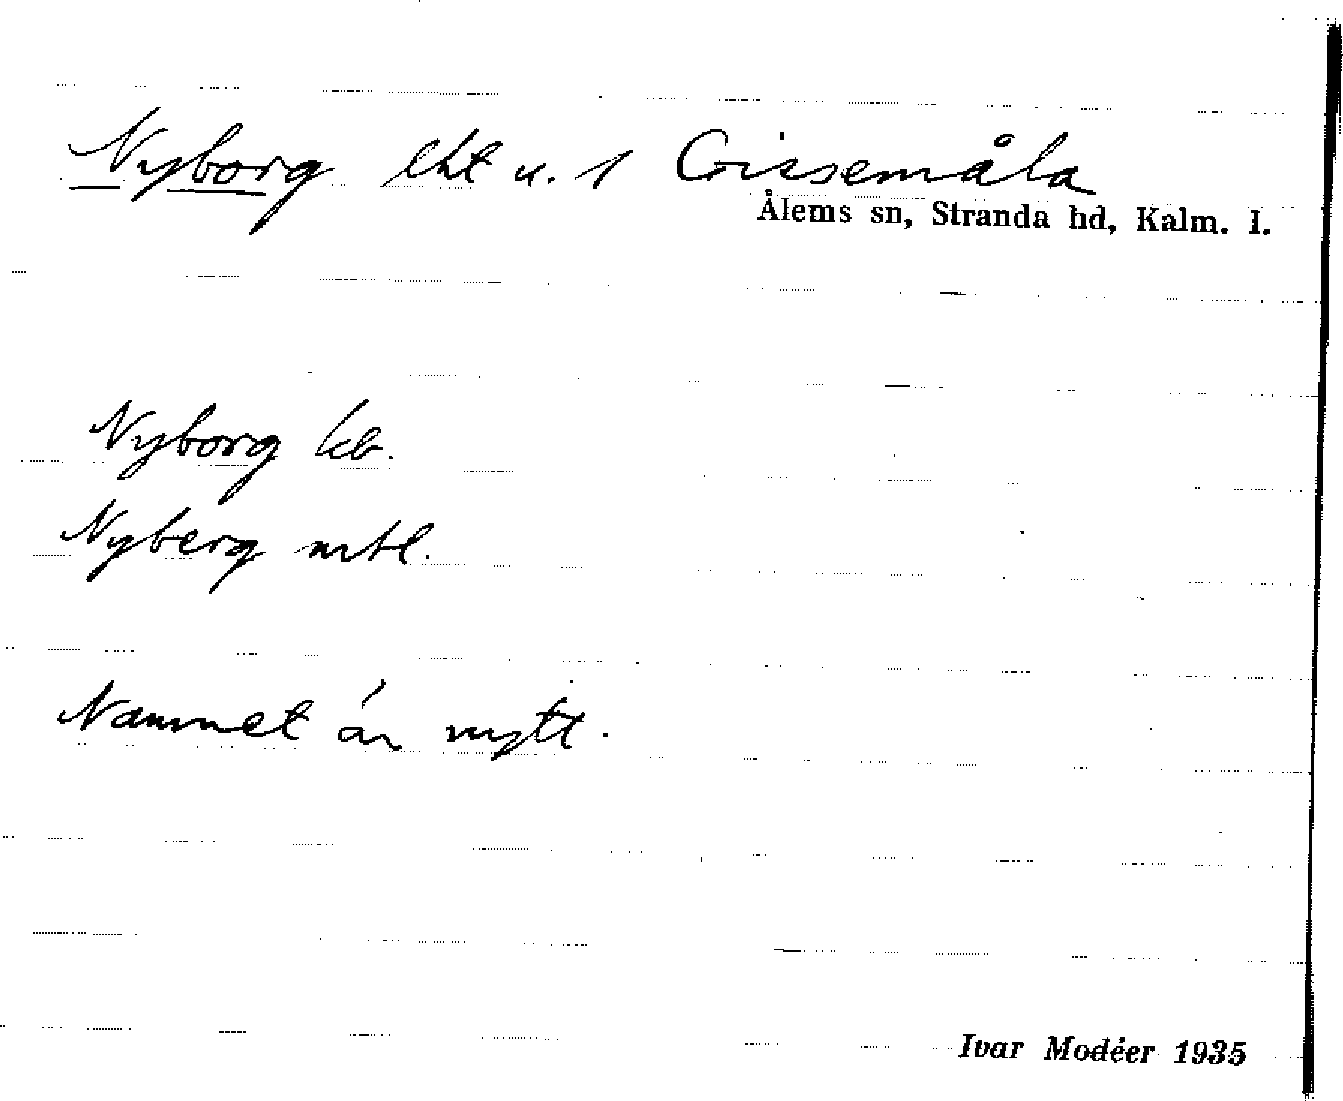 Nyborg lht u. 1 Crissemåla
Ålems sn, Stranda hd, Kalm. l.
Nyborg kb.
Nyberg mtl.
Namnet är nytt.
Ivar Modéer 1935